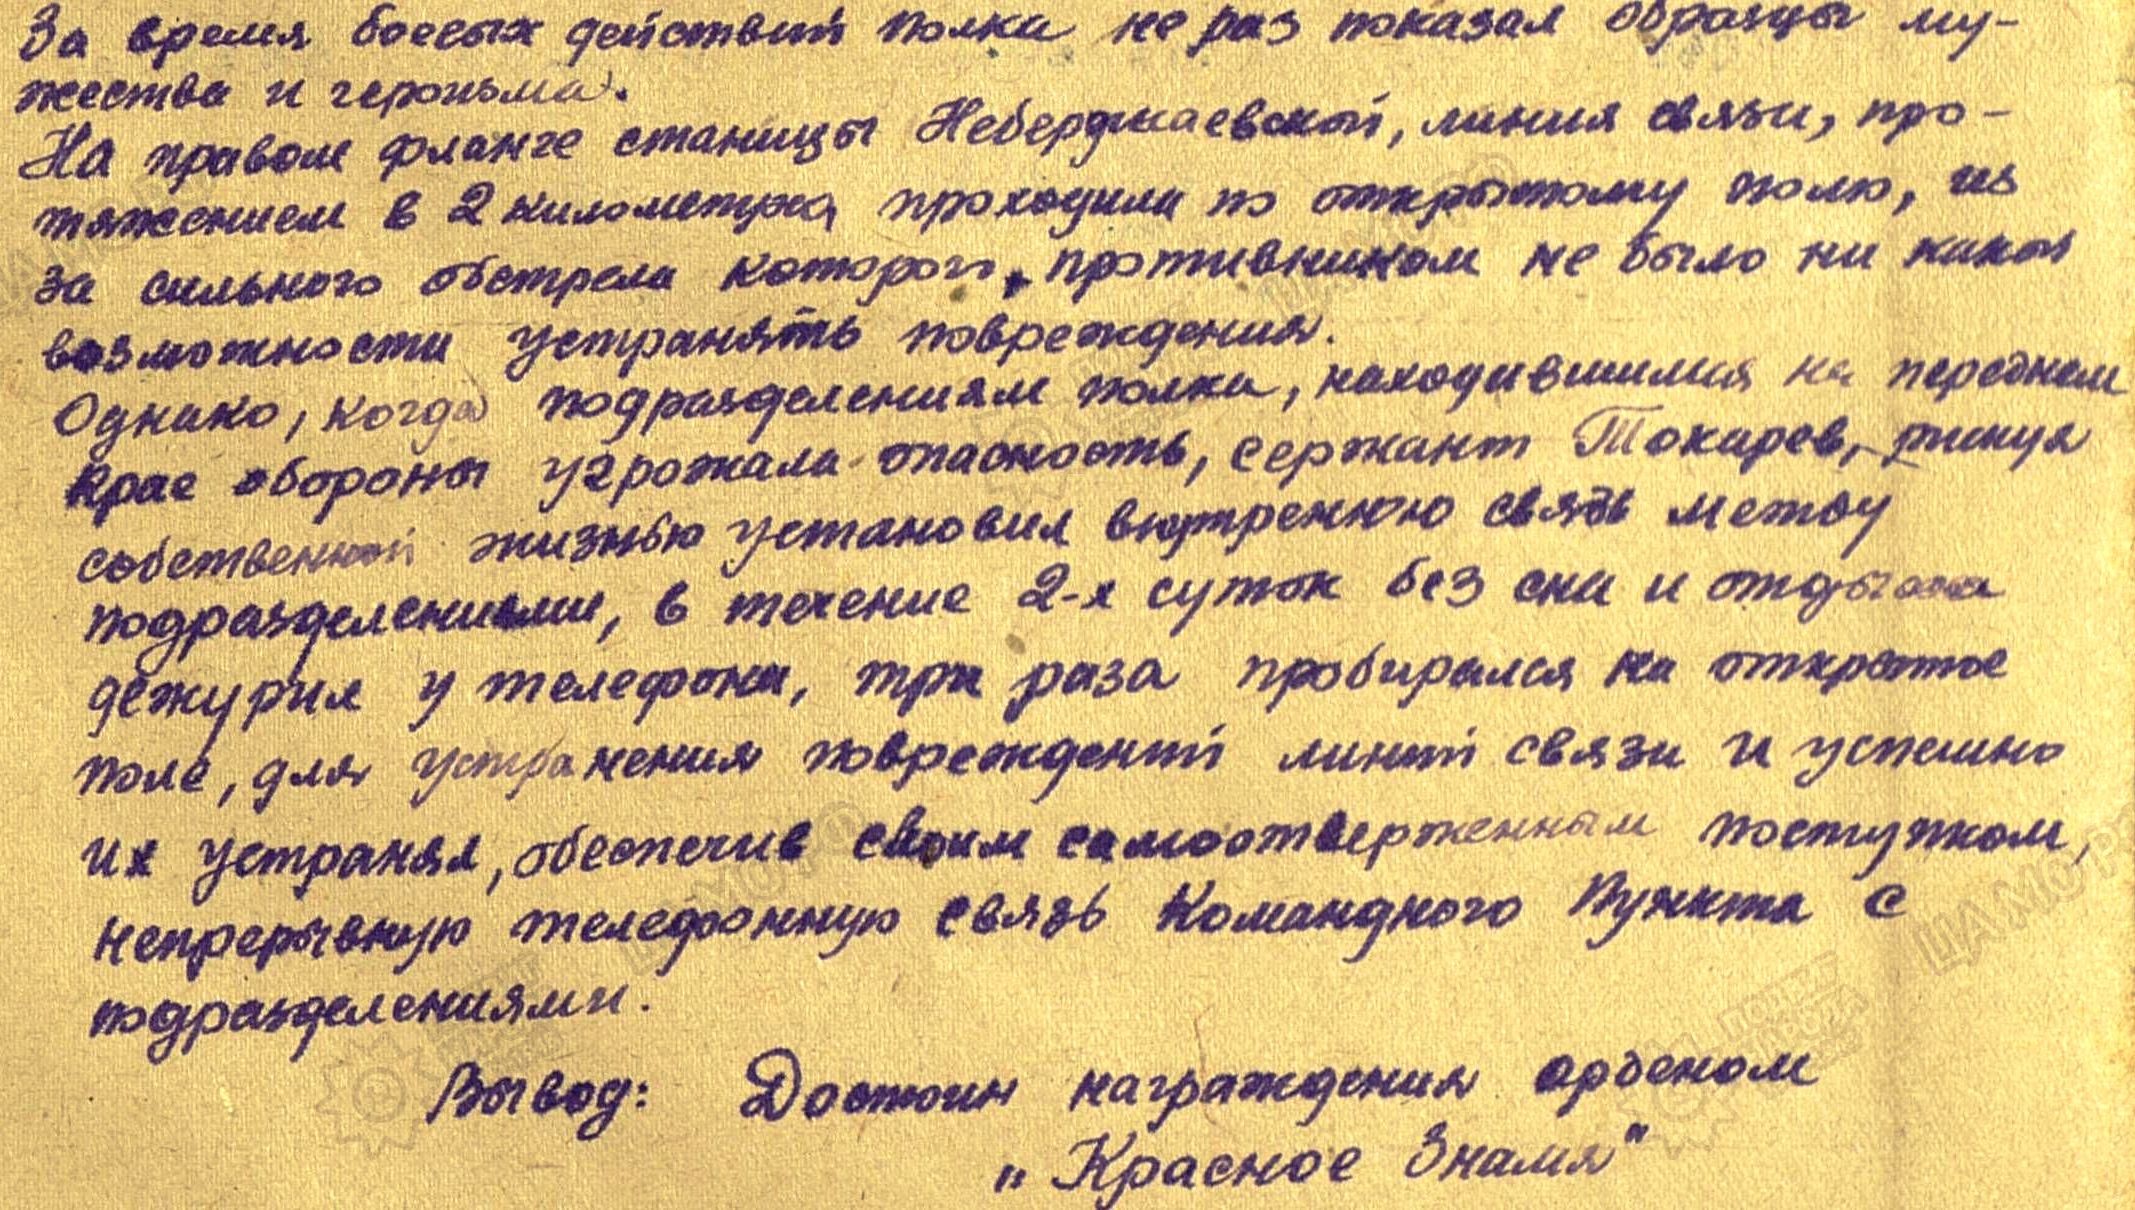 За время боевых действий полка не раз показал образцы му-
жества и героизма.
На правом фланге станицы Неберджаевской, линия связи, про-
тяжением в 2 километра, проходила по открытому полю, из
за сильного обстрела которого, противником не было ни какой
возможности устранять повреждения.
Однако, когда подразделениям полка, находившимися на переднем
крае обороны угрожала опасность, сержант Токарев, рискуя
собственной жизнью установил внутренюю связь между
подразделениями, в течение 2-х суток без сна и отдыха
дежурил у телефона, три раза пробирался на открытое
поле, для устранения повреждений линий связи и успешно
их устранял, обеспечив своим самоотверженным поступком,
непрерывную телефонную связь Командного Пункта с
подразделениями.
Вывод: Достоин награждения орденом
„Красное Знамя"
ЦА МО РФ